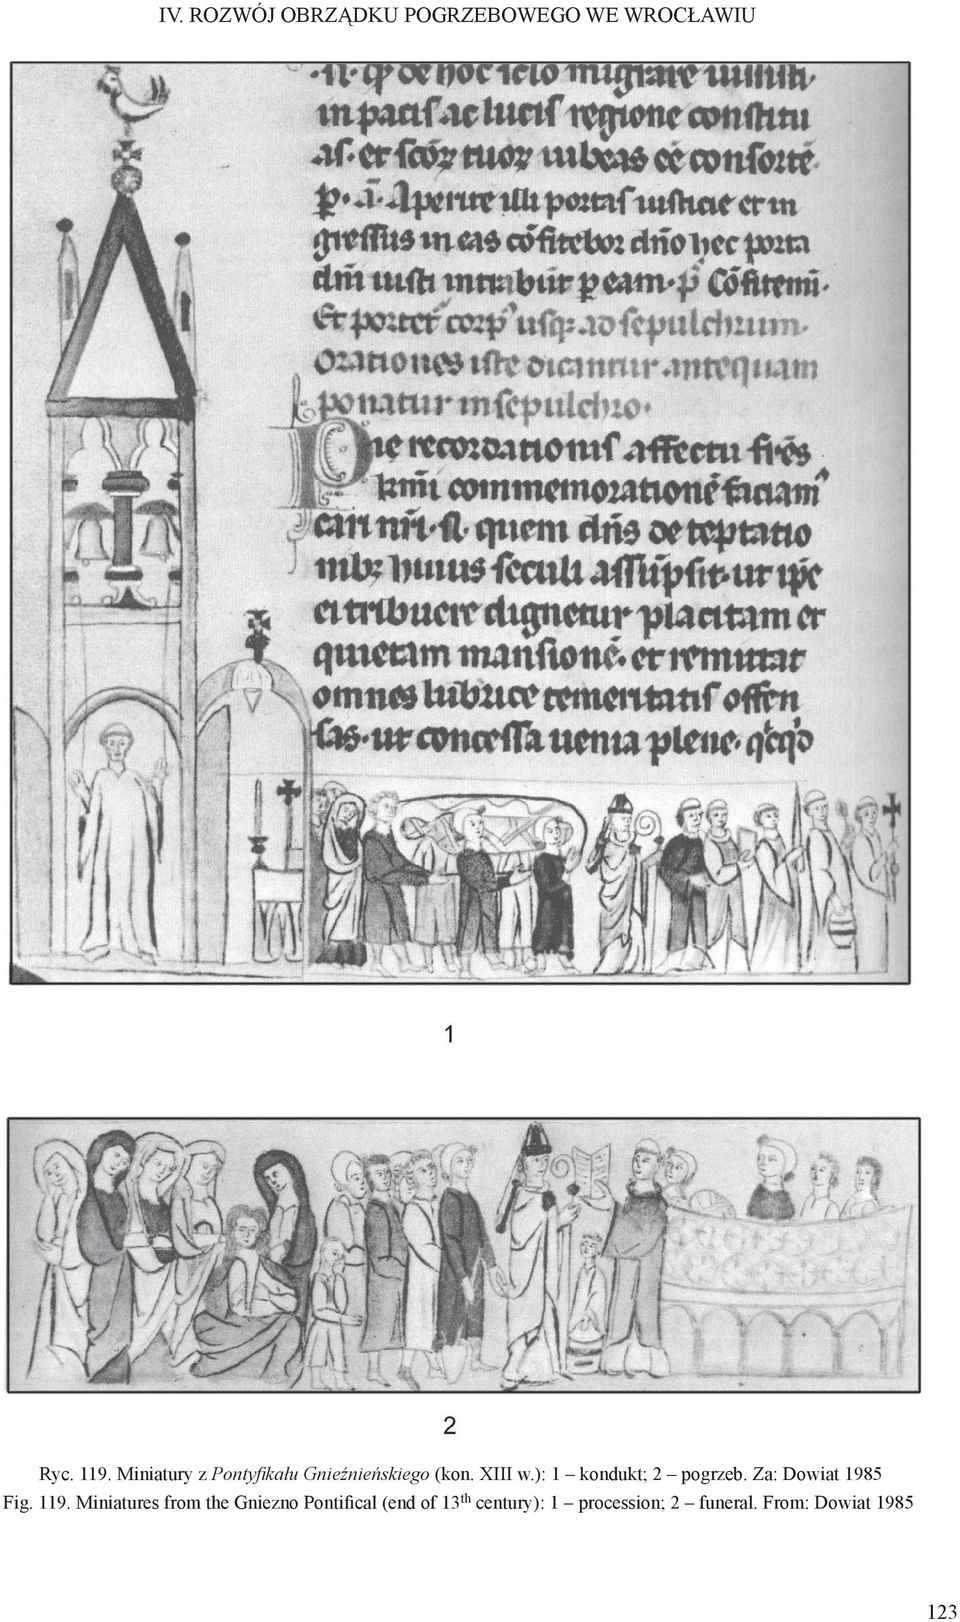 IV. ROZWÓJ OBRZĄDKU POGRZEBOWEGO WE WROCŁAWIU
·N· qͥ de hoc sclo migrare iussisti·
in pacis ac lucis regione constitu
as· et scōꝝ tuoꝝ iubeas eē consortē·
p̲· ā· Aperite illi portas iusticie et in
gressus in eas cōfitebor dn̄o hec porta
dn̄i iusti intrabūt p̲ eam· p̄ Cōfitemī·
Et portet̄ corpꝰ usq; ad sepulchrum·
Orationes iste dicantur antequam
ponatur in sepulchro·
Pie recordationis affectu frēs
km̄i commemorationē faciamꝰ
cari nr̄i· N· quem dn̄s de tēptatio
nibꝫ huius seculi assūpsit· ut ip̄e
ei tribuere dignetur placitam et
quietam mansionē· et remittat
omnes lubrice temeritatis offen
sas· ut concessa uenia plene· qͥcqͥd
1
2
Ryc. 119. Miniatury z Pontyfikału Gnieźnieńskiego (kon. XIII w.): 1 – kondukt; 2 – pogrzeb. Za: Dowiat 1985
Fig. 119. Miniatures from the Gniezno Pontifical (end of 13th century): 1 – procession; 2 – funeral. From: Dowiat 1985
123